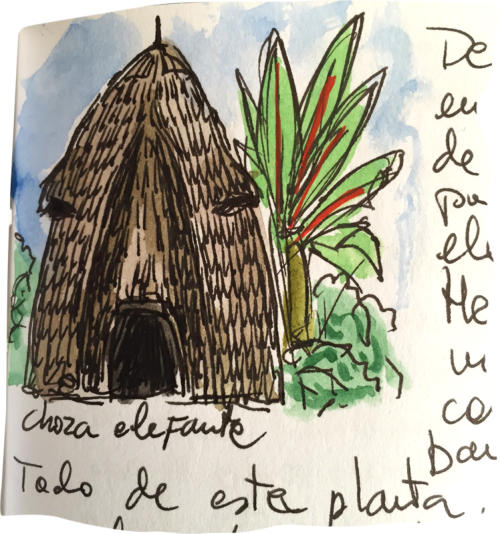 De
en
de
pa
ele
He
un
co
bar
choza elefante
Todo de esta planta.